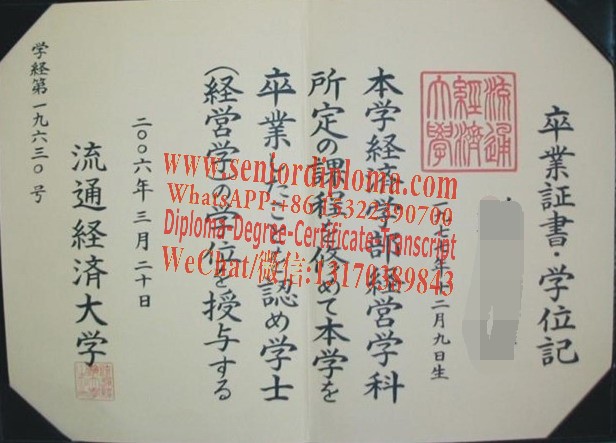 卒業証書・学位記
流通
経済
大学
一九七七年十二月九日生
本学経済学部経営学科
所定の課程を修めて本学を
卒業したことを認め学士
(経営学)の学位を授与する
二〇〇六年三月二十日
流通経済大学
学経第一九六三〇号
www.seniordiploma.com
WhatsAPP:+8615322490700
Diploma-Degree-Certificate-Transcript
WeChat/微信:13170389843